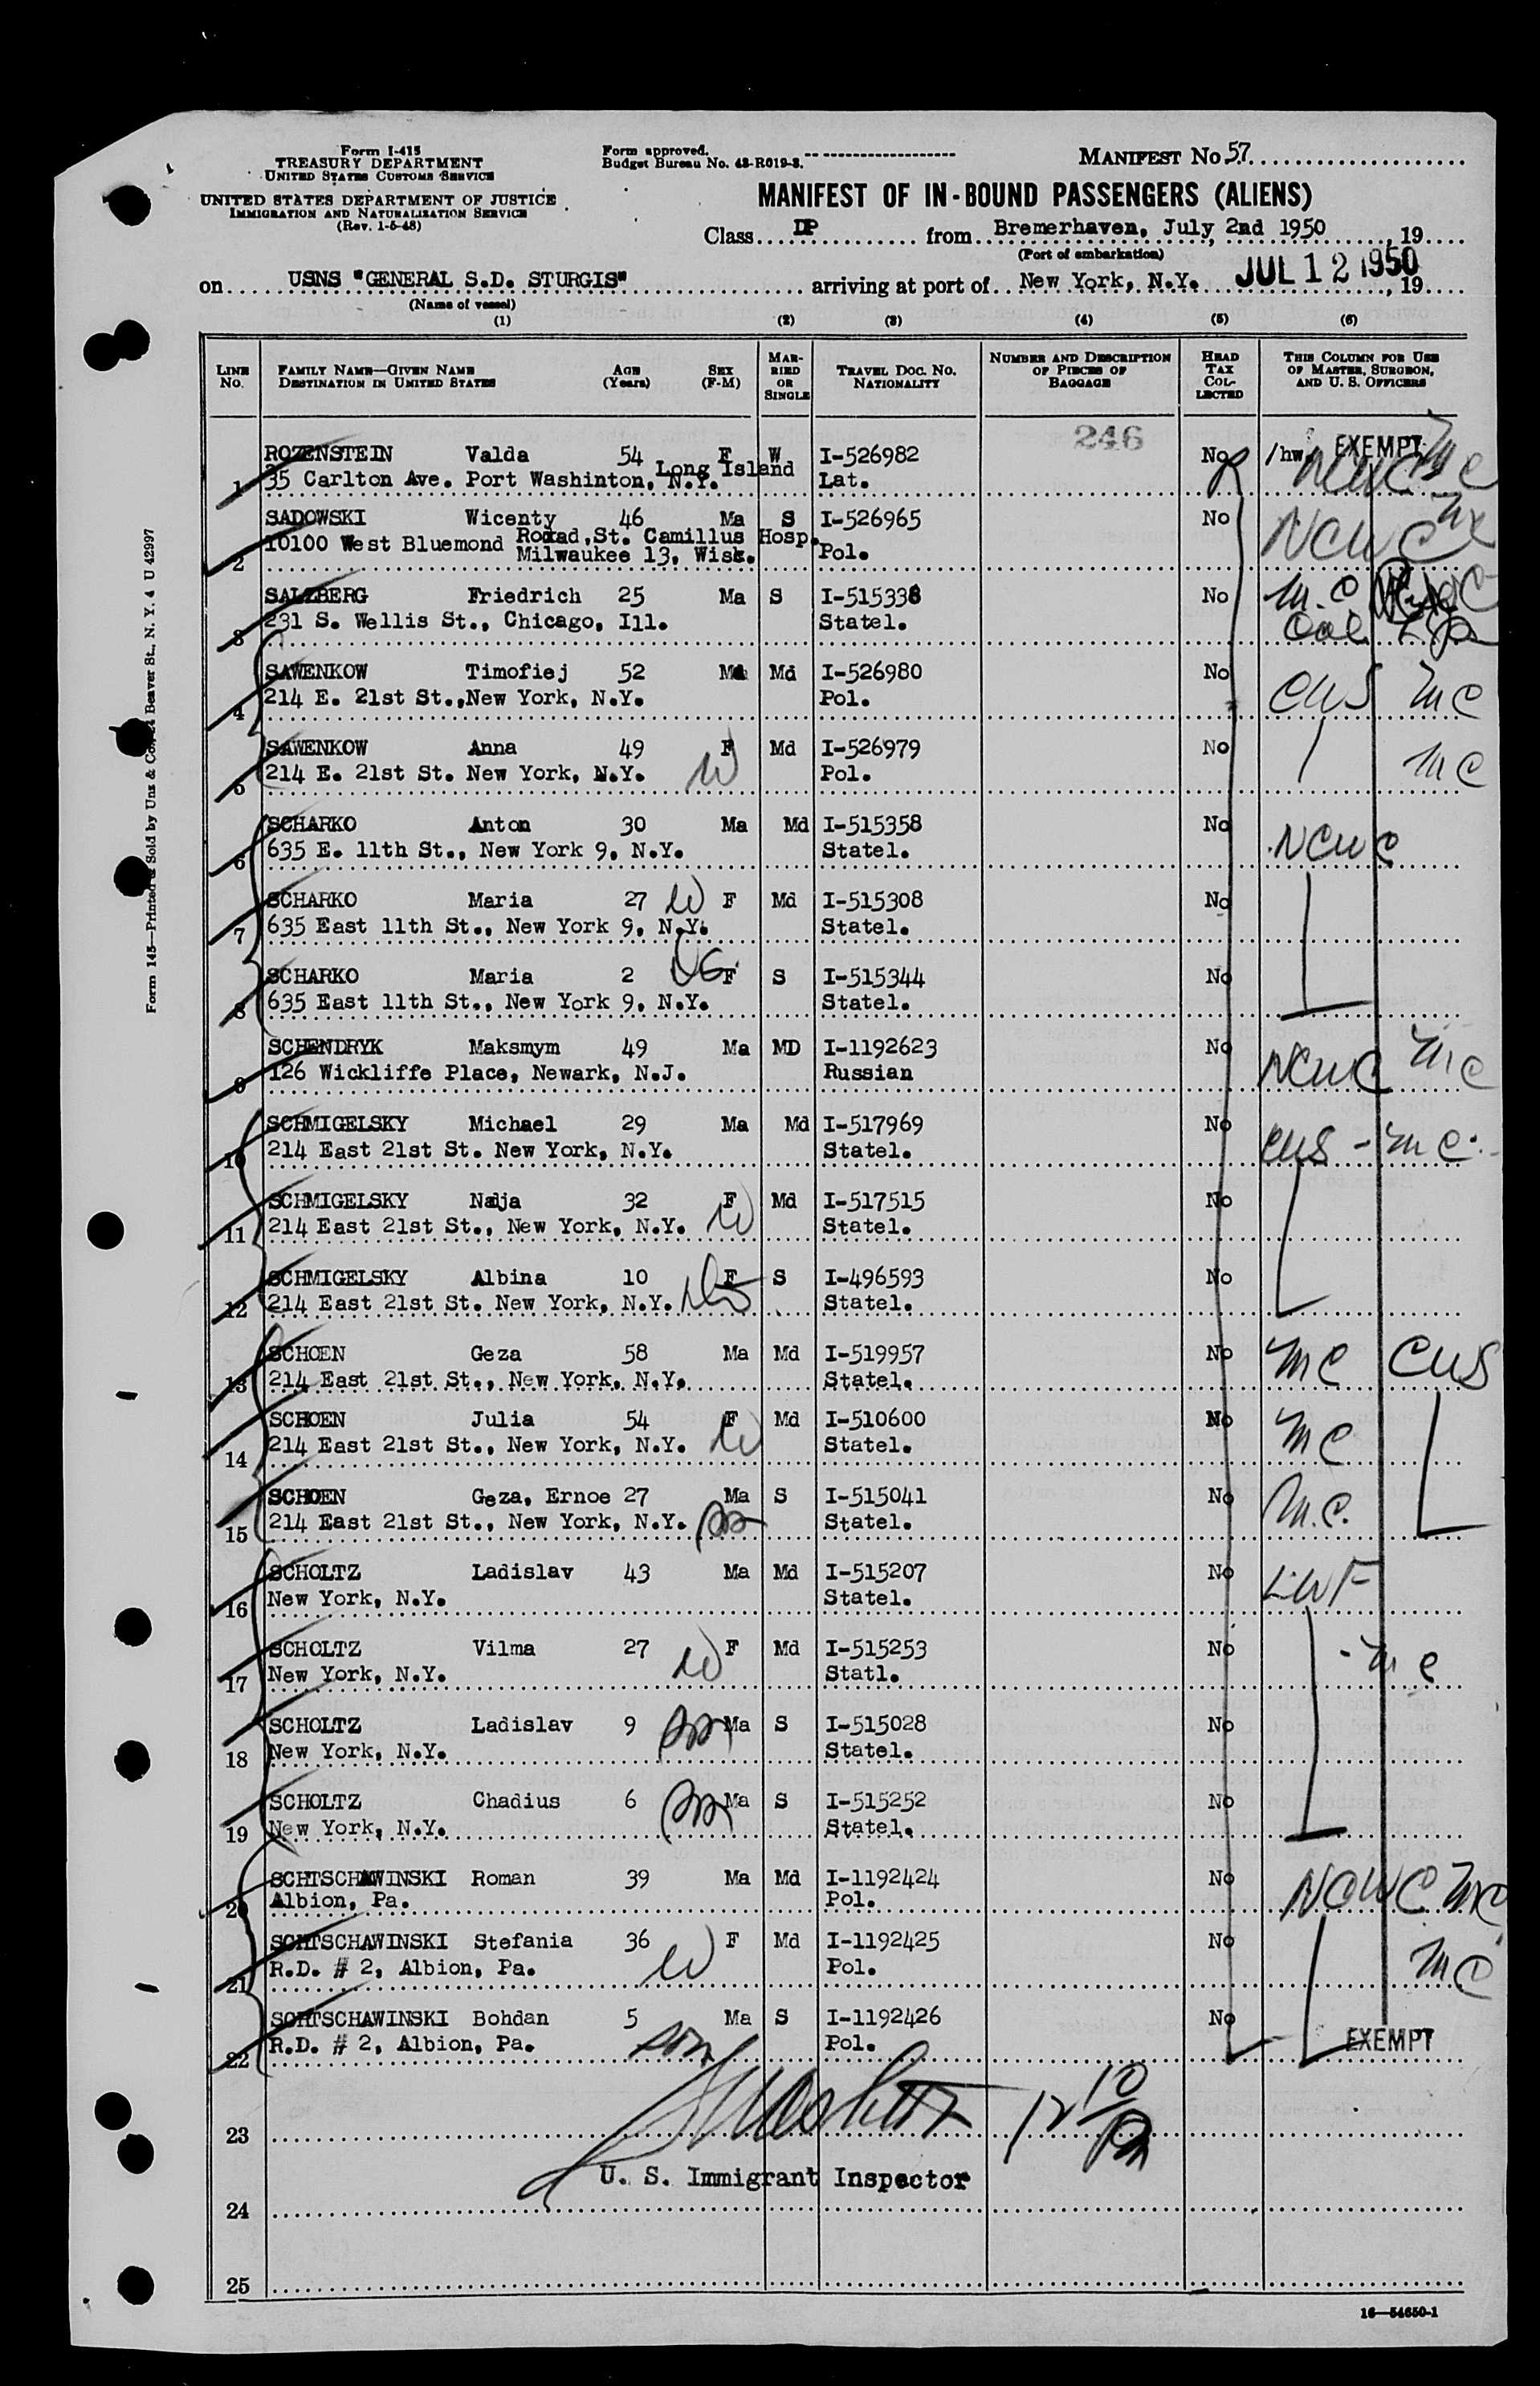 Form I-415
TREASURY DEPARTMENT
UNITED STATES CUSTOMS SERVICE
UNITED STATES DEPARTMENT OF JUSTICE
IMMIGRATION AND NATURALIZATION SERVICE
(Rev. 1-5-48)
Form approved.
Budget Bureau No. 43-R019-3.
MANIFEST No. 57
MANIFEST OF IN-BOUND PASSENGERS (ALIENS)
Class DP from Bremerhaven, July, 2nd 1950, 19
(Port of embarkation)
on USNS "GENERAL S.D. STURGIS" arriving at port of New York, N.Y. JUL 12 1950, 19
(Name of vessel)
(1) (2) (3) (4) (5) (6)
LINE No. FAMILY NAME—GIVEN NAME DESTINATION IN UNITED STATES AGE (Years) SEX (F-M) MARRIED OR SINGLE TRAVEL DOC. NO. NATIONALITY NUMBER AND DESCRIPTION OF PIECES OF BAGGAGE HEAD TAX COLLECTED THIS COLUMN FOR USE OF MASTER, SURGEON, AND U. S. OFFICERS
246
1 ROZENSTEIN Valda 54 F W I-526982 No /hw. EXEMPT NCWC mc
35 Carlton Ave. Port Washinton, Long Island N.Y. Lat.
2 SADOWSKI Wicenty 46 Ma S I-526965 No NCWC
10100 West Bluemond Roxad, St. Camillus Hosp. Milwaukee 13, Wisk. Pol.
3 SALZBERG Friedrich 25 Ma S I-515338 No m.c
231 S. Wellis St., Chicago, Ill. Statel.
4 SAWENKOW Timofiej 52 Ma Md I-526980 No CWS mc
214 E. 21st St., New York, N.Y. Pol.
5 SAWENKOW Anna 49 W F Md I-526979 No mc
214 E. 21st St. New York, N.Y. Pol.
6 SCHARKO Anton 30 Ma Md I-515358 No NCWC
635 E. 11th St., New York 9, N.Y. Statel.
7 SCHARKO Maria 27 W F Md I-515308 No
635 East 11th St., New York 9, N.Y. Statel.
8 SCHARKO Maria 2 F S I-515344 No
635 East 11th St., New York 9, N.Y. Statel.
9 SCHENDRYK Maksmym 49 Ma MD I-1192623 No NCWC mc
126 Wickliffe Place, Newark, N.J. Russian
10 SCHMIGELSKY Michael 29 Ma Md I-517969 No CWS - mc.
214 East 21st St. New York, N.Y. Statel.
11 SCHMIGELSKY Nadja 32 W F Md I-517515 No
214 East 21st St., New York, N.Y. Statel.
12 SCHMIGELSKY Albina 10 F S I-496593 No
214 East 21st St. New York, N.Y. Statel.
13 SCHOEN Geza 58 Ma Md I-519957 No mc CWS
214 East 21st St., New York, N.Y. Statel.
14 SCHOEN Julia 54 W F Md I-510600 No mc
214 East 21st St., New York, N.Y. Statel.
15 SCHOEN Geza, Ernoe 27 Ma S I-515041 No m.c.
214 East 21st St., New York, N.Y. Statel.
16 SCHOLTZ Ladislav 43 Ma Md I-515207 No LWF
New York, N.Y. Statel.
17 SCHOLTZ Vilma 27 W F Md I-515253 No - mc
New York, N.Y. Statl.
18 SCHOLTZ Ladislav 9 Ma S I-515028 No
New York, N.Y. Statel.
19 SCHOLTZ Chadius 6 Ma S I-515252 No
New York, N.Y. Statel.
20 SCHTSCHAWINSKI Roman 39 Ma Md I-1192424 No NCWC mc
Albion, Pa. Pol.
21 SCHTSCHAWINSKI Stefania 36 W F Md I-1192425 No mc
R.D. # 2, Albion, Pa. Pol.
22 SCHTSCHAWINSKI Bohdan 5 son Ma S I-1192426 No EXEMPT
R.D. # 2, Albion, Pa. Pol.
23
U. S. Immigrant Inspector
24
25
16—54650-1
Form 145—Printed & Sold by Unz & Co., 24 Beaver St., N. Y. 4 U 42997